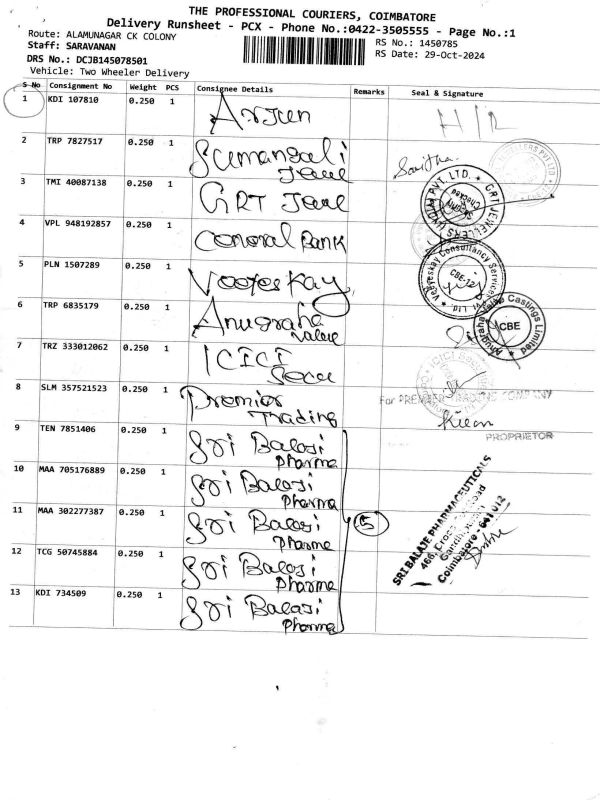 THE PROFESSIONAL COURIERS, COIMBATORE
Delivery Runsheet - PCX - Phone No.:0422-3505555 - Page No.:1
Route: ALAMUNAGAR CK COLONY
RS No.: 1450785
Staff: SARAVANAN
RS Date: 29-Oct-2024
DRS No.: DCJB145078501
Vehicle: Two Wheeler Delivery
S No Consignment No Weight PCS Consignee Details Remarks Seal & Signature
1 KDI 107810 0.250 1 Arjun
2 TRP 7827517 0.250 1 Sumangali Jewe
Savitha
3 TMI 40087138 0.250 1 GRT Jewe
GRT JEWELLERS (INDIA) PVT. LTD.
4 VPL 948192857 0.250 1 Canaral Bank
5 PLN 1507289 0.250 1 Veeyeskay
Veeyeskay Consultancy Services Pvt Ltd
CBE-12
6 TRP 6835179 0.250 1 Anugraha Value
Anugraha Valve Castings Limited
CBE
7 TRZ 333012062 0.250 1 ICICI Secu
8 SLM 357521523 0.250 1 Premier Trading
For PREMIER TRADING COMPANY
PROPRIETOR
9 TEN 7851406 0.250 1 Sri Balaji Pharma
10 MAA 705176889 0.250 1 Sri Balaji Pharma
11 MAA 302277387 0.250 1 Sri Balaji Pharma
5
12 TCG 50745884 0.250 1 Sri Balaji Pharma
13 KDI 734509 0.250 1 Sri Balaji Pharma
SRI BALAJE PHARMACEUTICALS
466, Cross Cut Road
Gandhipuram
Coimbatore - 641 012